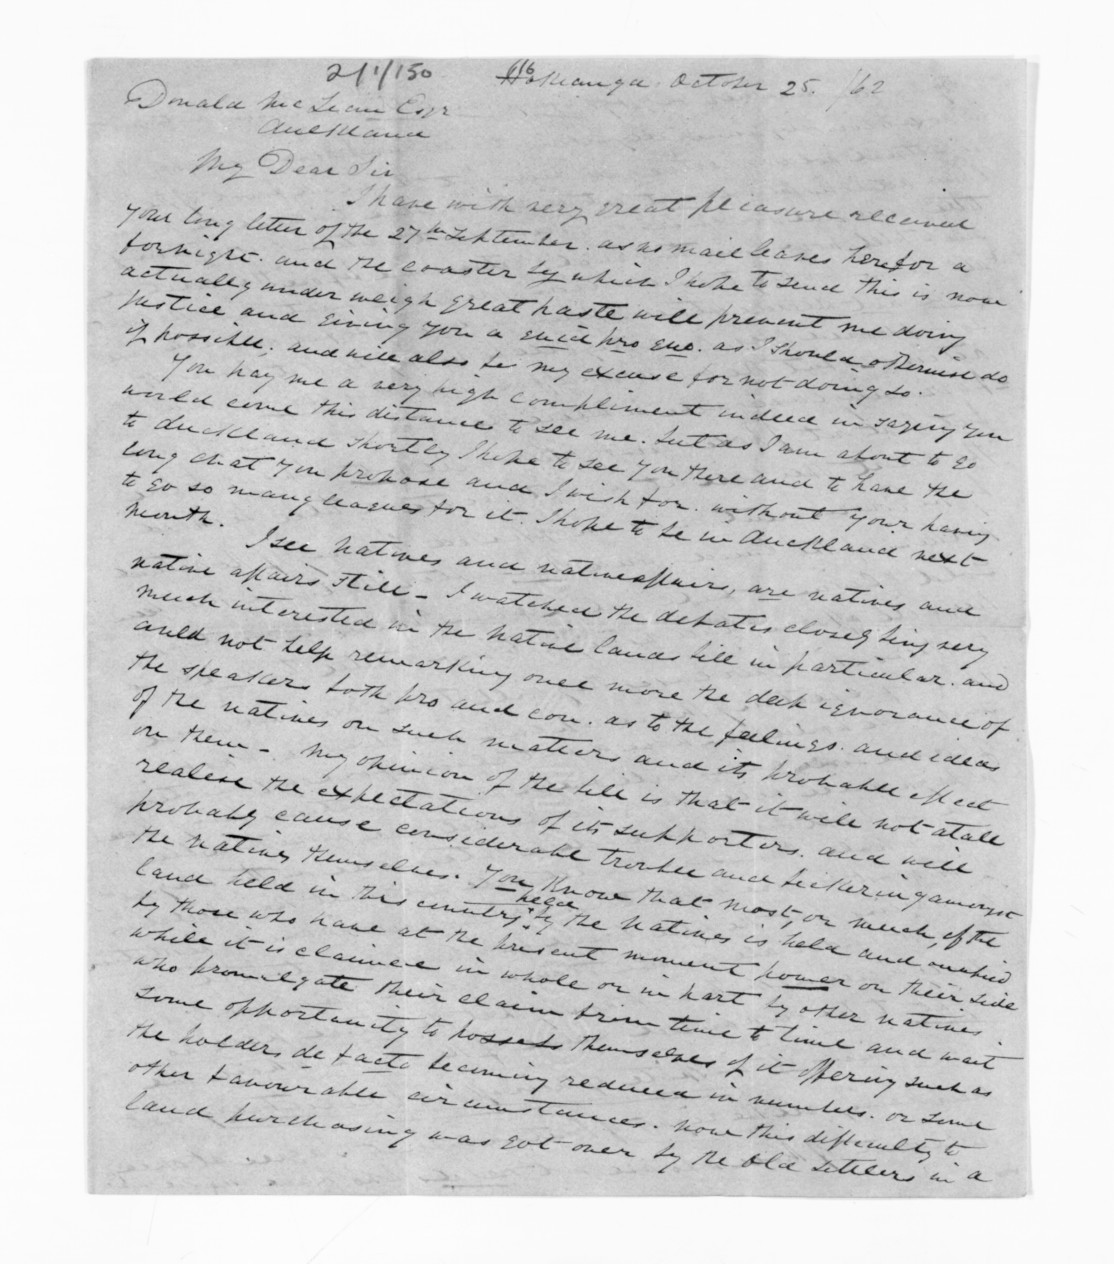 2/1/150
Hokianga. October 25. /62
Donald McLean Esqr
Auckland
My Dear Sir
I have with very great pleasure received
your long letter of the 27th September. as no mail leaves here for a
fornight. and the coaster by which I hope to send this is now
actually under weigh great haste will prevent me doing
justice and giving you a quid pro quo. as I should otherwise do
if possible. and will also be my excuse for not doing so.
You pay me a very high compliment indeed in saying you
would come this distance to see me. but as I am about to go
to Auckland shortly I hope to see you there and to have the
long chat you propose and I wish for. without your having
to go so many leagues for it. I hope to be in Auckland next
month.
I see natives and native affairs, are natives and
native affairs still - I watched the debates closely being very
much interested in the Native lands bill in particular. and
could not help remarking once more the deep ignorance of
the speakers both pro and con. as to the feelings. and ideas
of the natives on such matters and its probable effect
on them - My opinion of the bill is that it will not atall
realise the expectations of its supporters. and will
probably cause considerable trouble and bickering amongst
the natives themselves. You know that most, or much, of the
land held in this country by the natives is held and occupied
by those who have at the present moment power on their side
while it is claimed in whole or in part by other natives
who promulgate their claim from time to time and wait
some opportunity to possess themselves of it offering such as
the holders de facto becoming reduced in numbers. or some
other favourable circumstances. now this difficulty to
land purchasing was got over by the old settlers in a